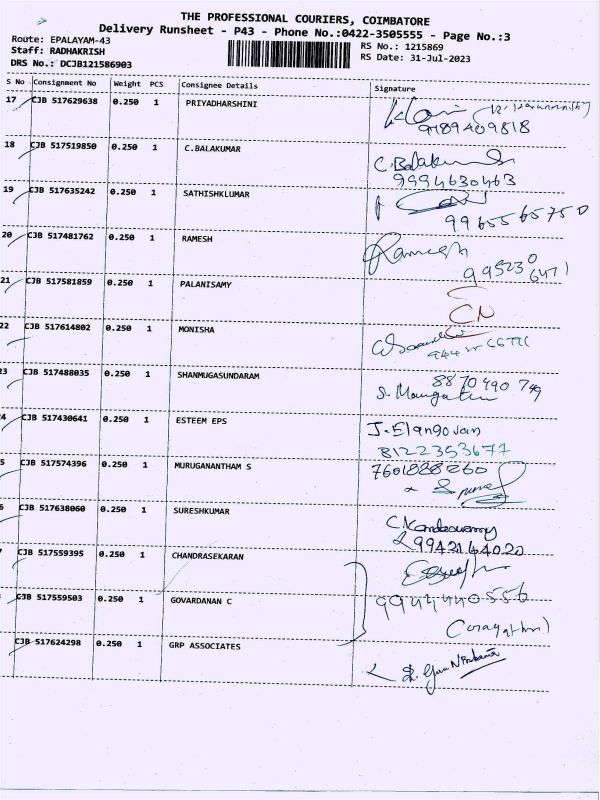 THE PROFESSIONAL COURIERS, COIMBATORE
Delivery Runsheet - P43 - Phone No.:0422-3505555 - Page No.:3
Route: EPALAYAM-43
RS No.: 1215869
Staff: RADHAKRISH
RS Date: 31-Jul-2023
DRS No.: DCJB121586903
S No Consignment No Weight PCS Consignee Details Signature
17 CJB 517629638 0.250 1 PRIYADHARSHINI
9189409818
18 CJB 517519850 0.250 1 C.BALAKUMAR C. Balakumar
9994630463
19 CJB 517635242 0.250 1 SATHISHKLUMAR
9965565750
20 CJB 517481762 0.250 1 RAMESH Ramesh
99523 0
6471
21 CJB 517581859 0.250 1 PALANISAMY
CN
22 CJB 517614802 0.250 1 MONISHA
23 CJB 517488035 0.250 1 SHANMUGASUNDARAM 8870490749
4 CJB 517430641 0.250 1 ESTEEM EPS J. Elangovan
8122353677
5 CJB 517574396 0.250 1 MURUGANANTHAM S 7601888260
6 CJB 517638060 0.250 1 SURESHKUMAR C Kandaswamy
9942164020
7 CJB 517559395 0.250 1 CHANDRASEKARAN
CJB 517559503 0.250 1 GOVARDANAN C 9944440556
CJB 517624298 0.250 1 GRP ASSOCIATES